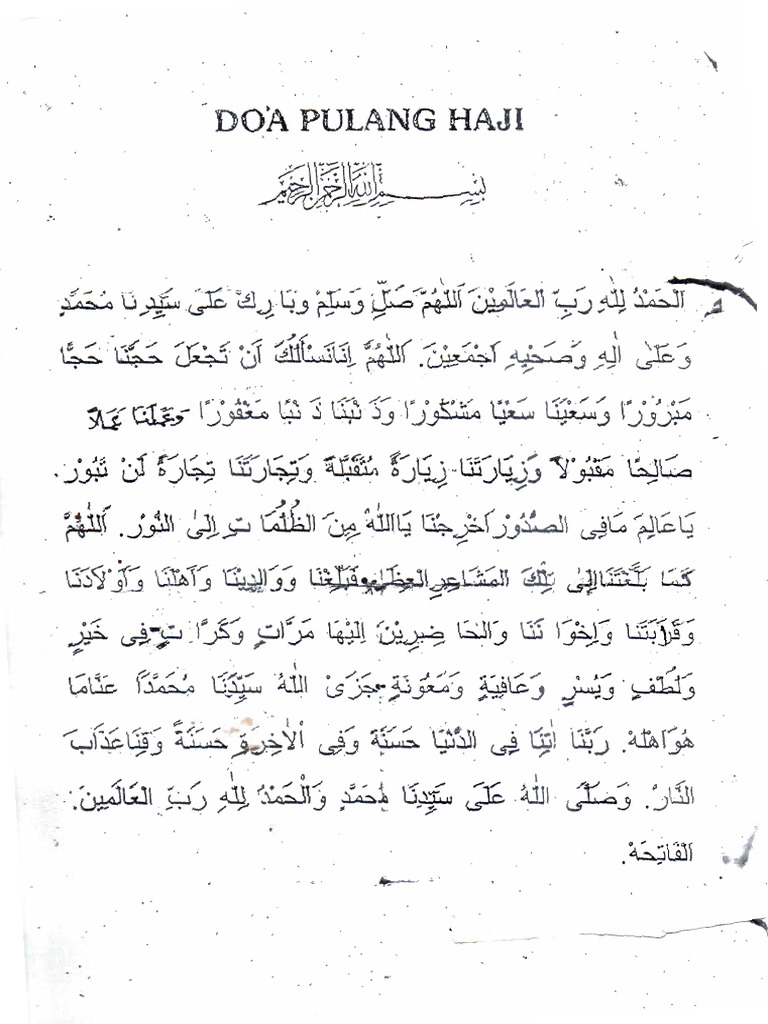 DO'A PULANG HAJI
بِسْمِ اللّٰهِ الرَّحْمٰنِ الرَّحِيْمِ
اَلْحَمْدُ لِلّٰهِ رَبِّ الْعَالَمِيْنَ اَللّٰهُمَّ صَلِّ وَسَلِّمْ وَبَارِكْ عَلَى سَيِّدِنَا مُحَمَّدٍ
وَعَلَى اٰلِهِ وَصَحْبِهِ اَجْمَعِيْنَ. اَللّٰهُمَّ اِنَانَسْأَلُكَ اَنْ تَجْعَلَ حَجَّنَا حَجًّا
مَبْرُوْرًا وَسَعْيَنَا سَعْيًا مَشْكُوْرًا وَذَنْبَنَا ذَنْبًا مَغْفُوْرًا وَعَمَلَنَا عَمَلاً
صَالِحًا مَقْبُوْلاً وَزِيَارَتَنَا زِيَارَةً مُتَقَبَّلَةً وَتِجَارَتَنَا تِجَارَةً لَنْ تَبُوْرَ.
يَاعَالِمَ مَافِى الصُّدُوْرِ اَخْرِجْنَا يَااَللّٰهُ مِنَ الظُّلُمَاتِ اِلَى النُّوْرِ. اَللّٰهُمَّ
كَمَا بَلَّغْتَنَا اِلَى تِلْكَ الْمَشَاعِرِ الْعِظَامِ فَبَلِّغْنَا وَوَالِدِيْنَا وَاَهْلَنَا وَاَوْلَادَنَا
وَقَرَابَتَنَا وَاِخْوَانَنَا وَالْحَاضِرِيْنَ اِلَيْهَا مَرَّاتٍ وَكَرَّاتٍ فِى خَيْرٍ
وَلُطْفٍ وَيُسْرٍ وَعَافِيَةٍ وَمَعُوْنَةٍ جَزَى اللّٰهُ سَيِّدَنَا مُحَمَّدًا عَنَّامَا
هُوَاَهْلُهُ. رَبَّنَا اٰتِنَا فِى الدُّنْيَا حَسَنَةً وَفِى اْلاٰخِرَةِ حَسَنَةً وَقِنَاعَذَابَ
النَّارِ. وَصَلَّى اللّٰهُ عَلَى سَيِّدِنَا مُحَمَّدٍ وَالْحَمْدُ لِلّٰهِ رَبِّ الْعَالَمِيْنَ:
اَلْفَاتِحَةْ.